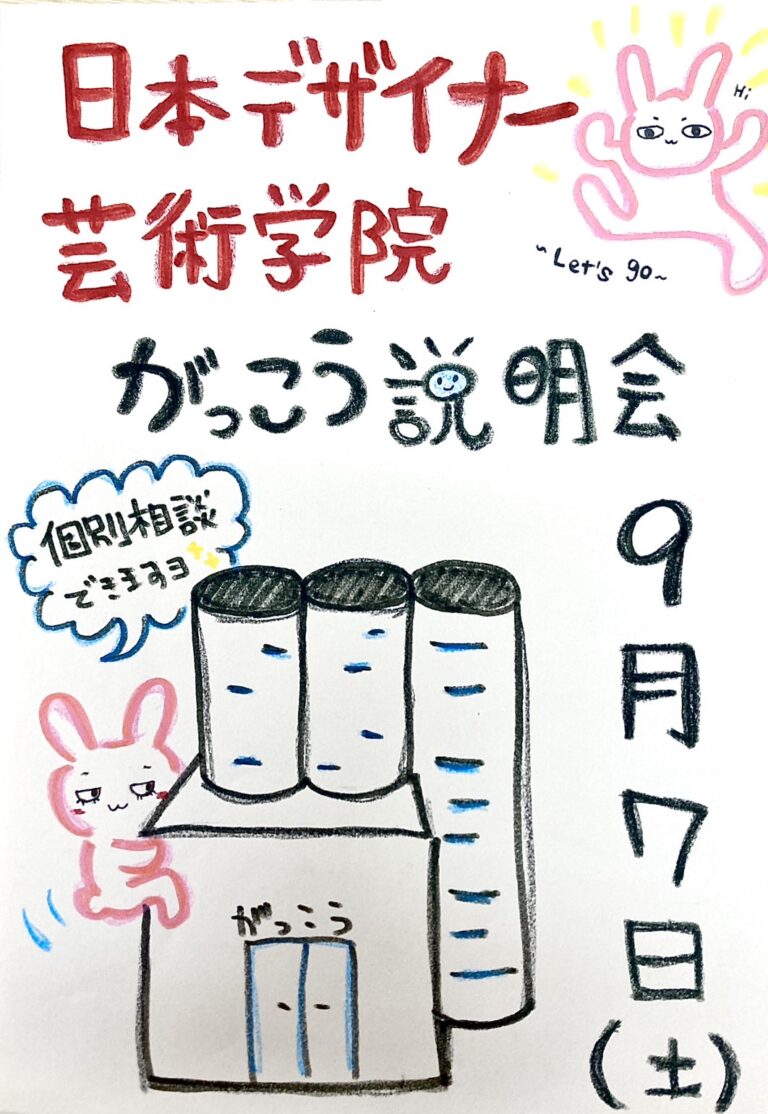 日本デザイナー
芸術学院
Hi
~Let's go~
がっこう説明会
個別相談
できますヨ
9月7日(土)
がっこう